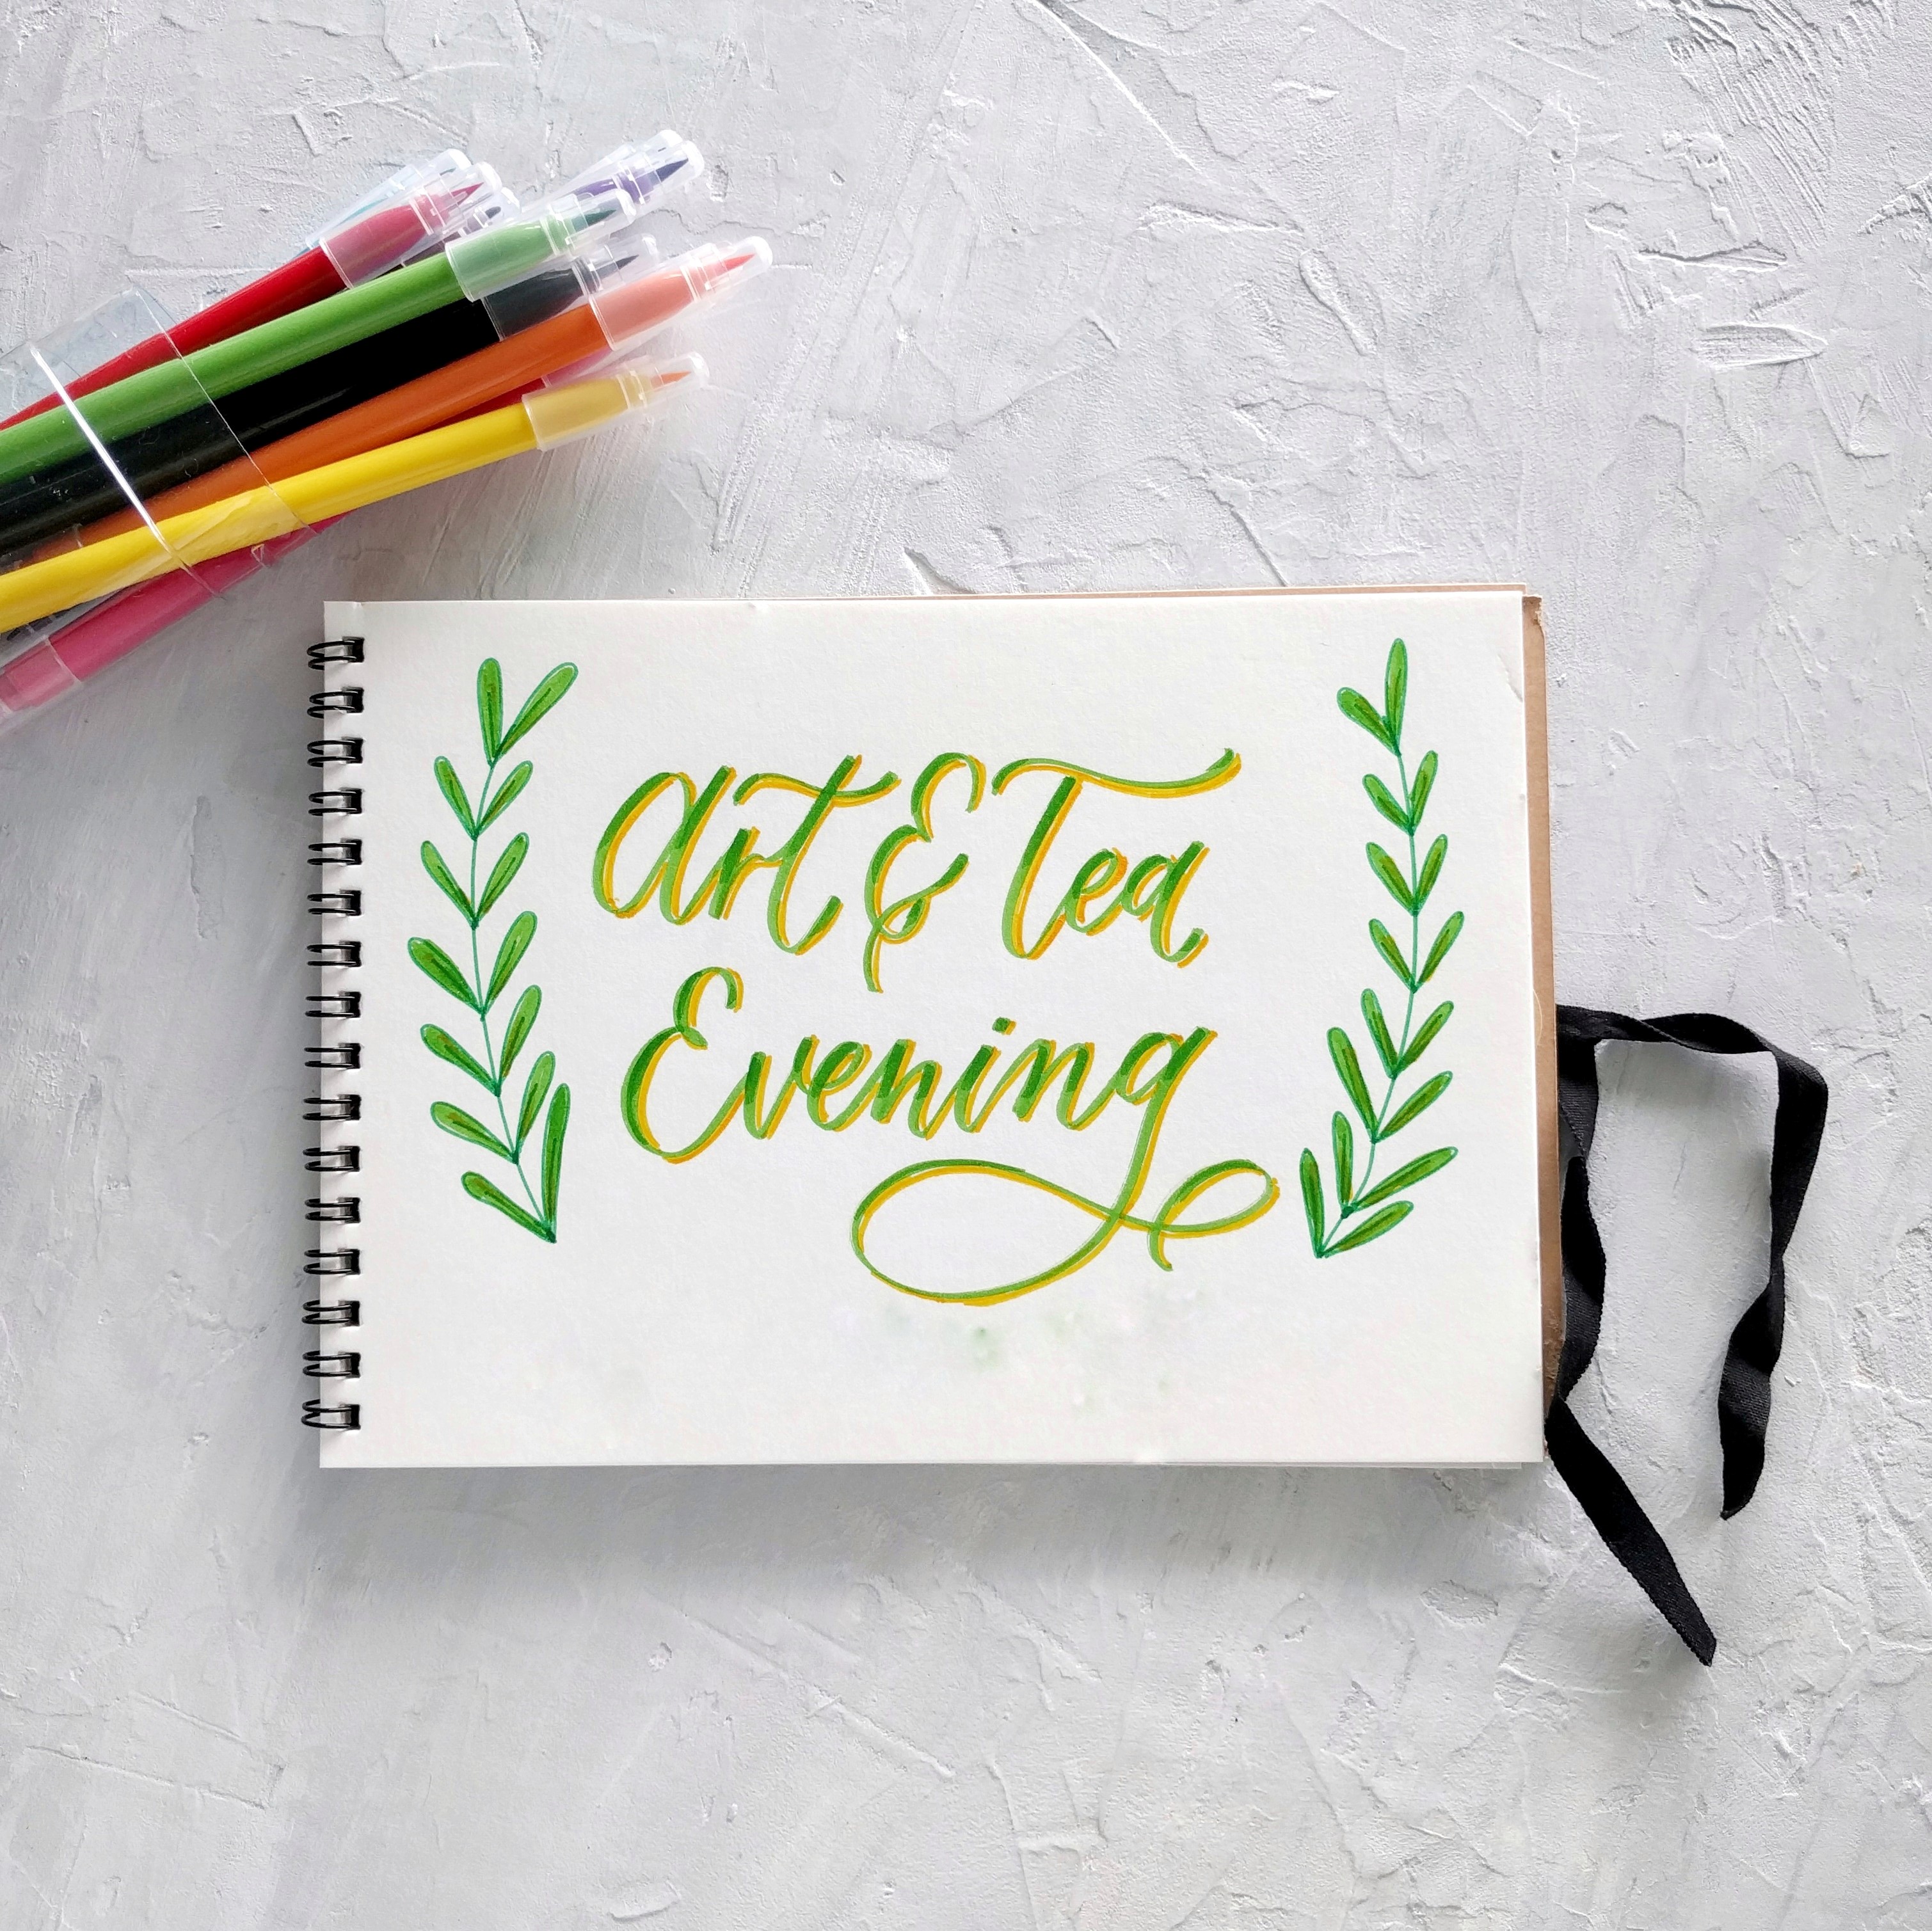 Art & Tea
Evening